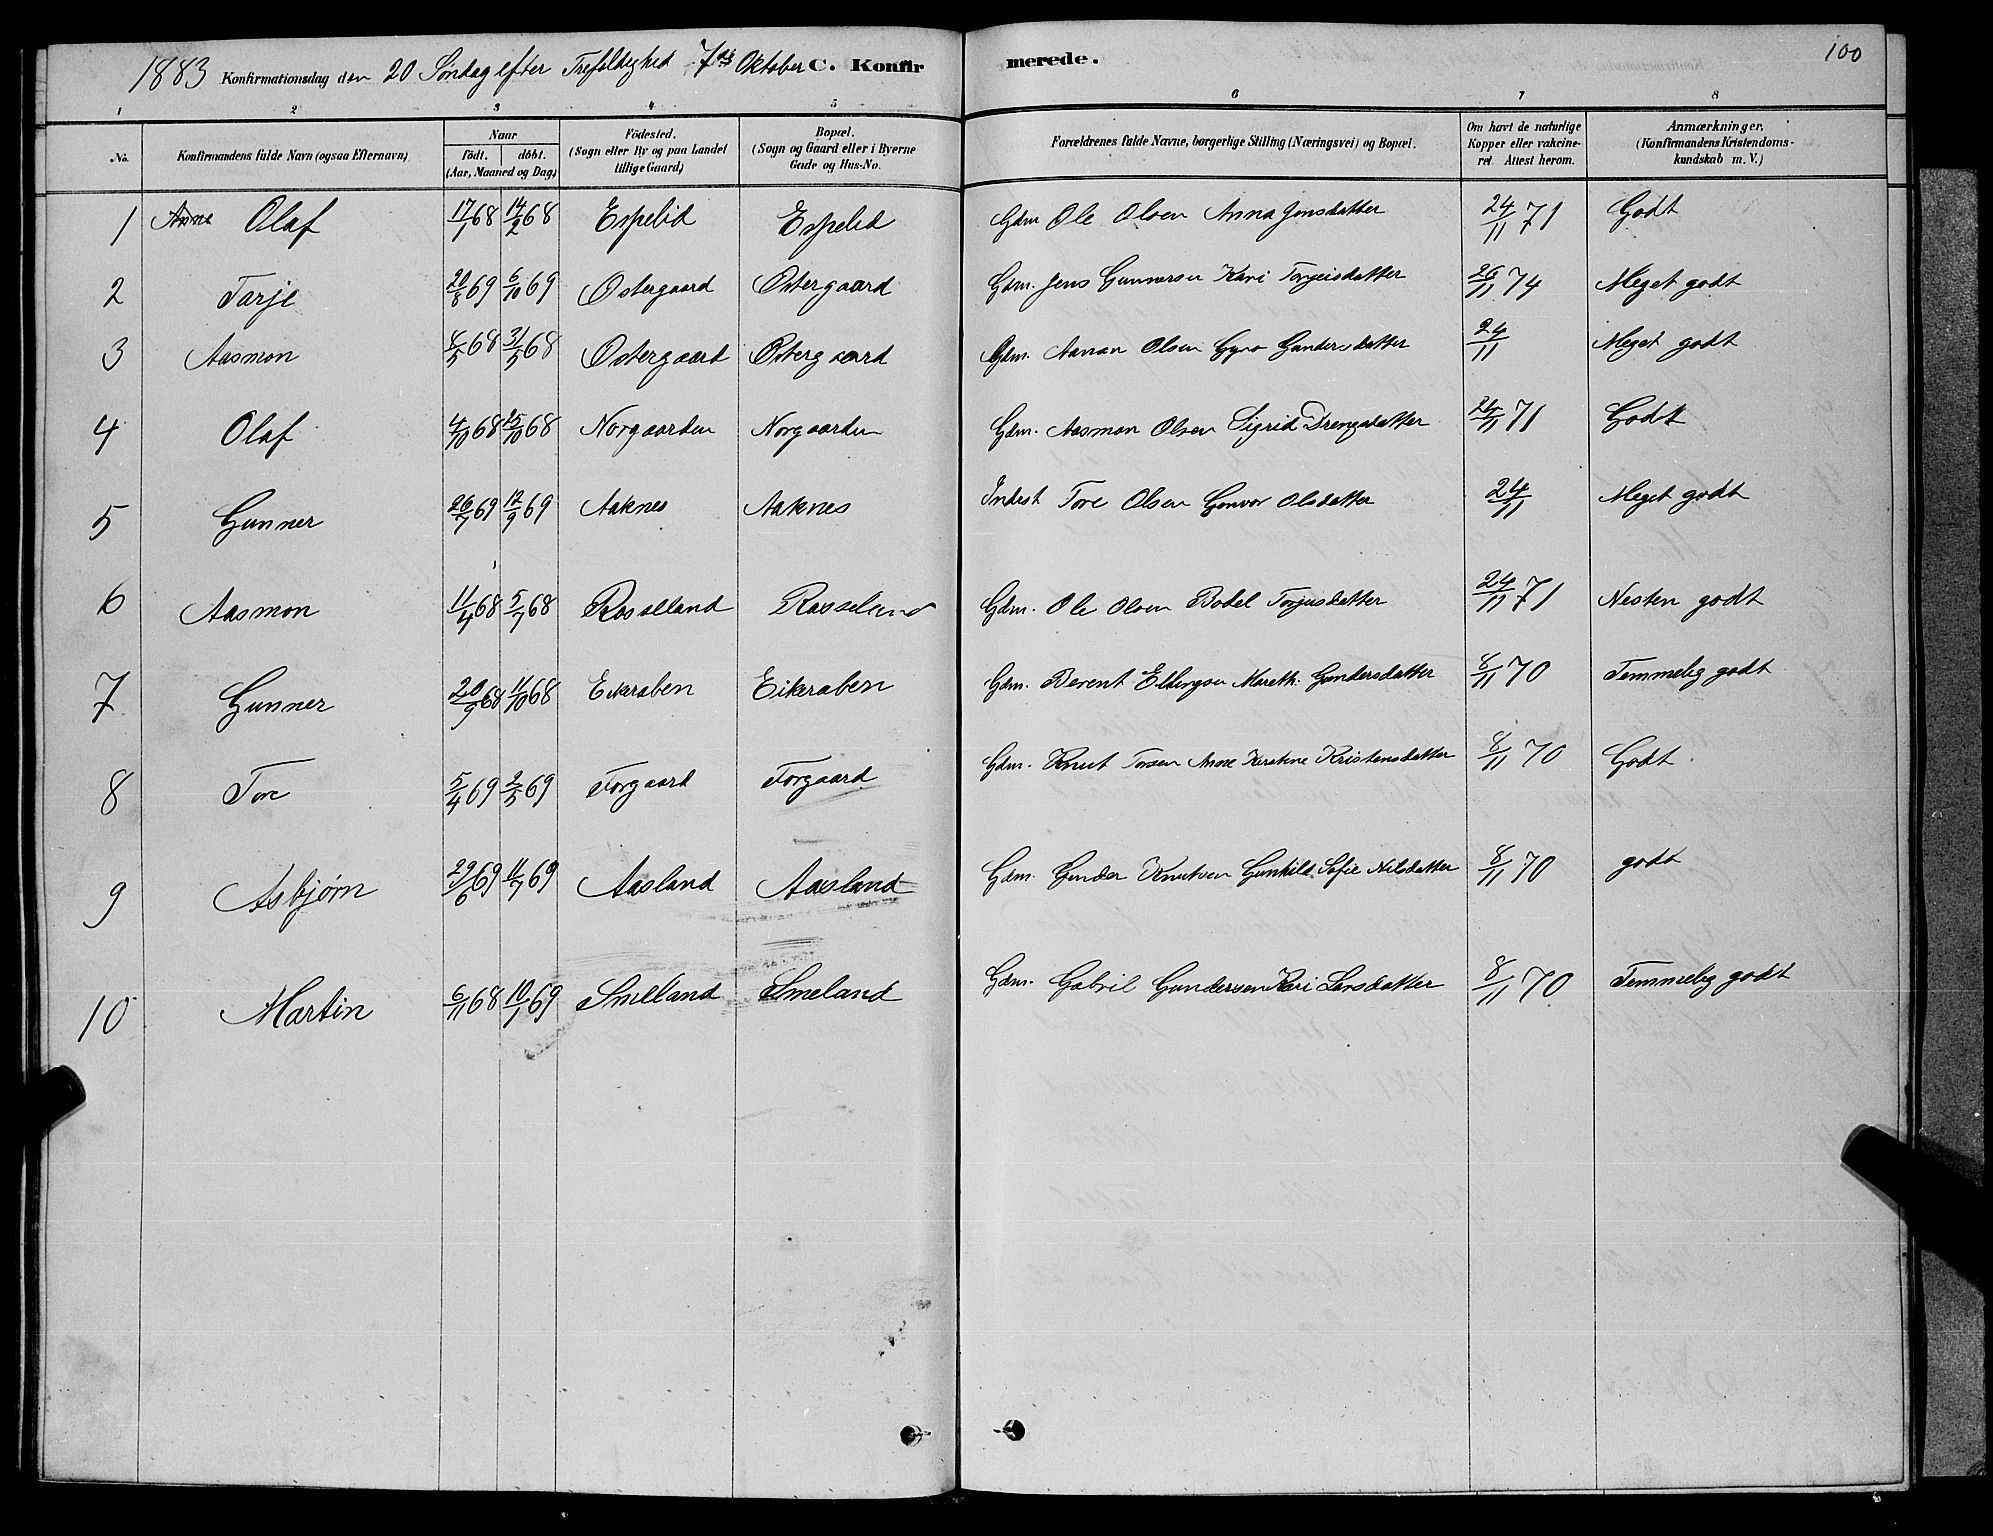 1883 Konfirmationsdag den 20 Søndag efter Trefoldighed 7de Oktober C. Konfir merede. 100
1 2 3 4 5 6 7 8
No. Konfirmandens fulde Navn (ogsaa Efternavn) Naar födt. döbt. (Aar, Maaned og Dag) Födested. (Sogn eller By og paa Landet tillige Gaard) Bopæl. (Sogn og Gaard eller i Byerne Gade og Hus-No. Forældrenes fulde Navne, borgerlige Stilling (Næringsvei) og Bopæl. Om havt de naturlige Kopper eller vakcineret. Attest herom. Anmærkninger. (Konfirmandens Kristendomskundskab m. V.)
1 Olaf 17/1 68 14/2 68 Espelid Espelid Gdm Ole Olsen Anna Jensdatter 24/11 71 Godt
2 Tarje 20/8 69 6/10 69 Ostergaard Ostergaard Gdm. Jens Gunnersen Kari Torgeisdatter 26/11 74 Meget godt
3 Aasmon 8/5 68 31/5 68 Ostergaard Ostergaard Gdm. Aanan Olsen Gyro Gundersdatter 24/11 Meget godt
4 Olaf 4/10 68 25/10 68 Norgaarden Norgaarden Gdm. Aasmon Olsen Sigrid Drengsdatter 24/11 71 Godt
5 Gunner 26/7 69 12/9 69 Aaknes Aaknes Inderst Tore Olsen Gunvor Olsdatter 24/11 Meget godt
6 Aasmon 11/4 68 5/7 68 Rosseland Rosseland Gdm. Ole Olsen Bodel Torjusdatter 24/11 71 Nesten godt
7 Gunner 20/9 68 11/10 68 Eikraben Eikraben Gdm. Berent Ellingsen Mareth. Gundersdatter 8/11 70 Temmelig godt
8 Tore 5/4 69 2/5 69 Forgaard Forgaard Gdm. Knut Torsen Anne Kirstine Kristensdatter 8/11 70 Godt
9 Asbjørn 29/6 69 11/7 69 Aasland Aasland Gdm. Gunder Knutsen Gunhild Sofie Nilsdatter 8/11 70 godt
10 Martin 6/11 68 10/1 69 Smeland Smeland Gdm. Gabril Gundersen Kari Larsdatter 8/11 70 Temmelig godt